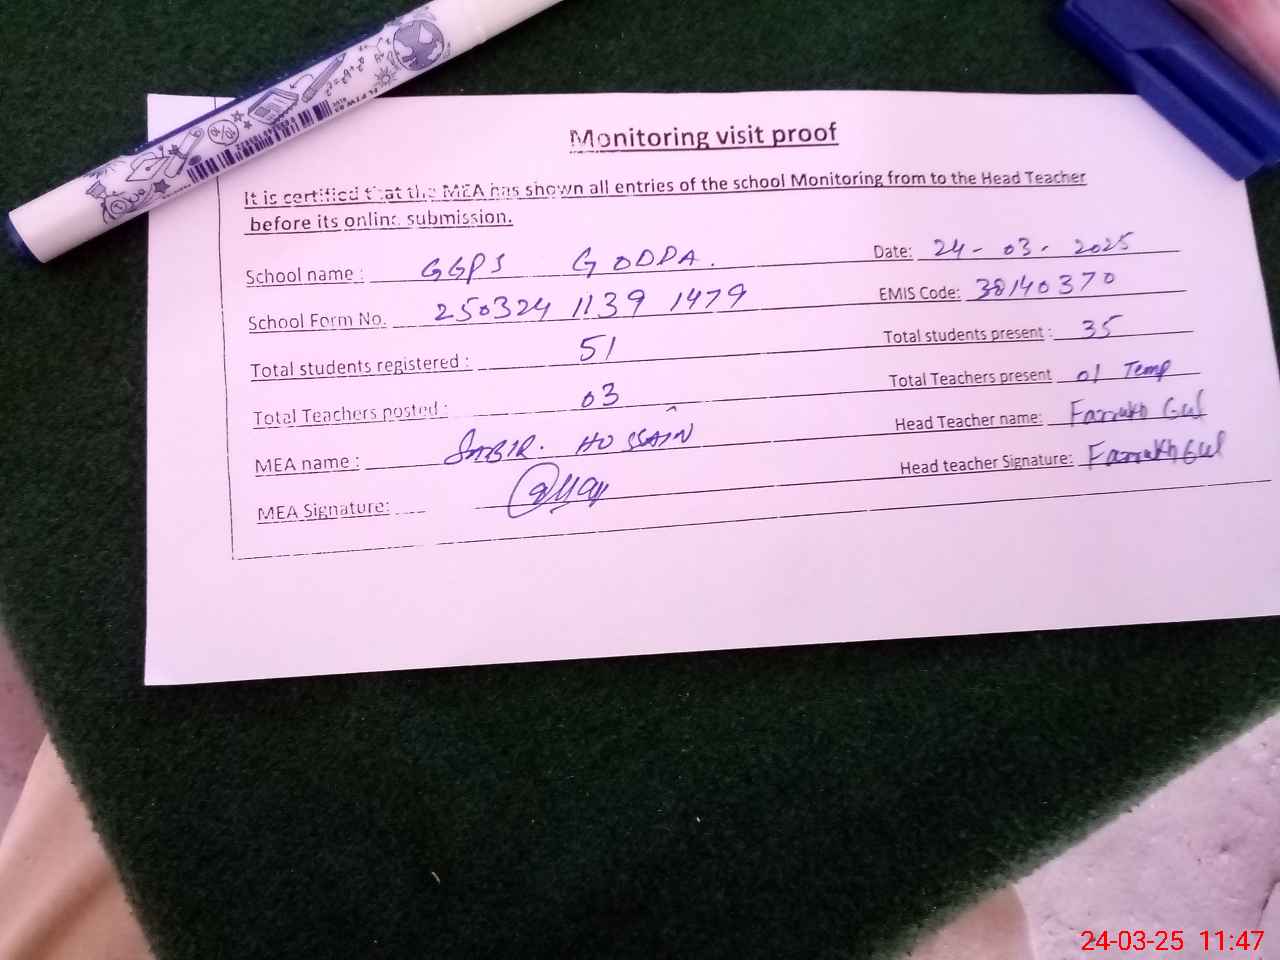 Monitoring visit proof
It is certified that the MEA has shown all entries of the school Monitoring from to the Head Teacher
before its online submission.
School name : GGPS GODPA. Date: 24-03-2025
School Form No. 250324 1139 1479 EMIS Code: 38140370
Total students registered : 51 Total students present : 35
Total Teachers posted : 03 Total Teachers present 01 Temp
MEA name : HUSSAIN Head Teacher name: Farrukh Gul
MEA Signature: Head teacher Signature: Farrukh Gul
24-03-25 11:47